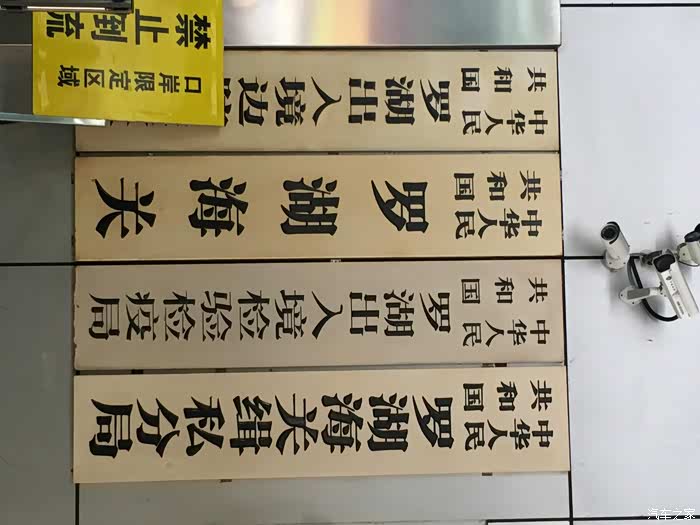 中华人民
共和国
罗湖海关缉私分局
中华人民
共和国
罗湖出入境检验检疫局
中华人民
共和国
罗湖海关
中华人民
共和国
罗湖出入境边
口岸限定区域
禁止到流
汽车之家